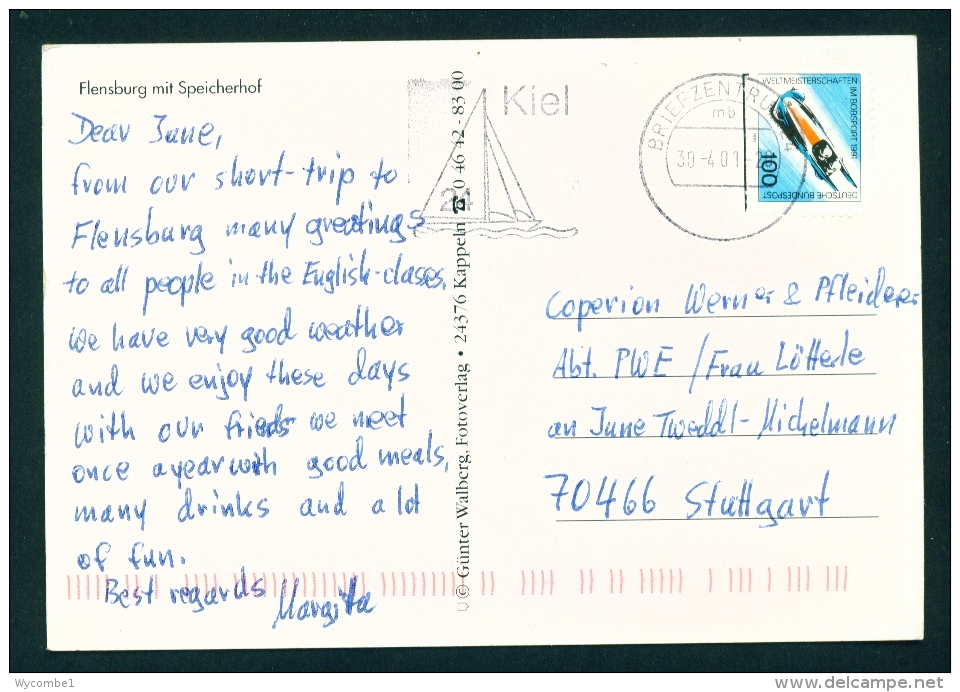 Flensburg mit Speicherhof
Dear June,
from our short-trip to
Flensburg many greetings
to all people in the English-classes.
We have very good weather
and we enjoy these days
with our frieds we meet
once a year with good meals,
many drinks and a lot
of fun.
Best regards Margitta
© Günter Walberg, Fotoverlag • 24376 Kappeln ☎ 0 46 42 - 83 00
Kiel
24
BRIEFZENTRUM 24
mb
30-4.01
WELTMEISTERSCHAFTEN
IM BOBSPORT 1991
100
DEUTSCHE BUNDESPOST
Coperion Werner & Pfleiderer
Abt. PWE / Frau Lötterle
an June Tweddl-Michelmann
70466 Stuttgart
Wycombe1
www.delcampe.net